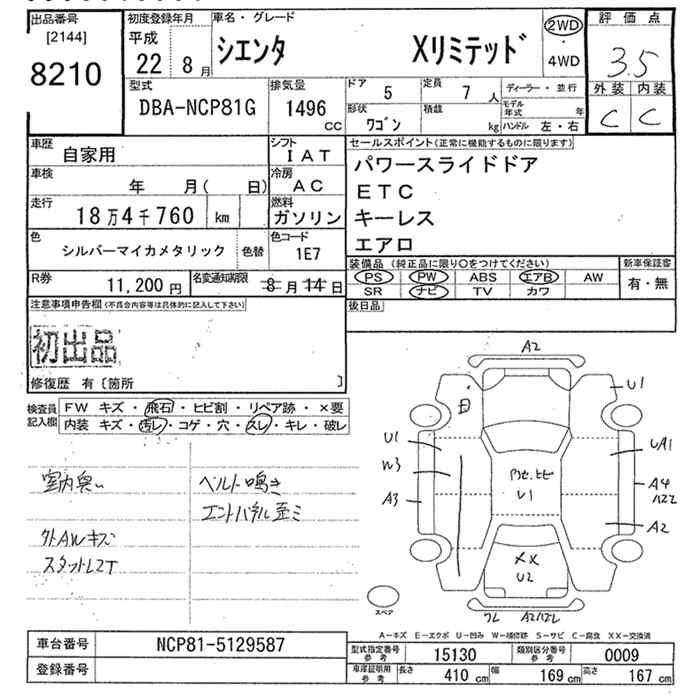 出品番号
[2144]
8210
初度登録年月
平成
22年 8月
車名・グレード
シエンタ Xリミテッド
2WD
・
4WD
評価点
3.5
外装 内装
C C
型式
DBA-NCP81G
排気量
1496
CC
ドア 5
定員 7人
形状 ワゴン
積載 kg
ディーラー・並行
モデル年式 年
ハンドル 左・右
車歴 自家用
シフト IAT
車検 年 月( 日)
冷房 AC
走行 18万4千760 km
燃料 ガソリン
色 シルバーマイカメタリック 色替
色コード 1E7
R券 11,200円
名変通知期限 8月14日
セールスポイント(正常に機能するものに限ります)
パワースライドドア
ETC
キーレス
エアロ
装備品 (純正品に限り○をつけてください)
PS PW ABS エアB AW
SR ナビ TV カワ
新車保証書
有・無
後日品
注意事項申告欄(不具合内容等は具体的に記入して下さい)
初出品
修復歴 有〔箇所 〕
検査員記入欄
FW キズ・飛石・ヒビ割・リペア跡・×要
内装 キズ・汚レ・コゲ・穴・スレ・キレ・破レ
室内臭い
ベルト鳴き
エンドパネル歪ミ
外AWキズ
スタットレスT
A2
U1
U1
W3
A3
UA1
A4
ハガレ
A2
U1
XX
U2
ワレ A2ハガレ
スペア
A-キズ E-エクボ U-凹み W-補修跡 S-サビ C-腐食 XX-交換済
車台番号 NCP81-5129587
登録番号
型式指定番号 参考 15130
類別区分番号 参考 0009
車庫証明用 参考 長さ 410 cm 幅 169 cm 高さ 167 cm